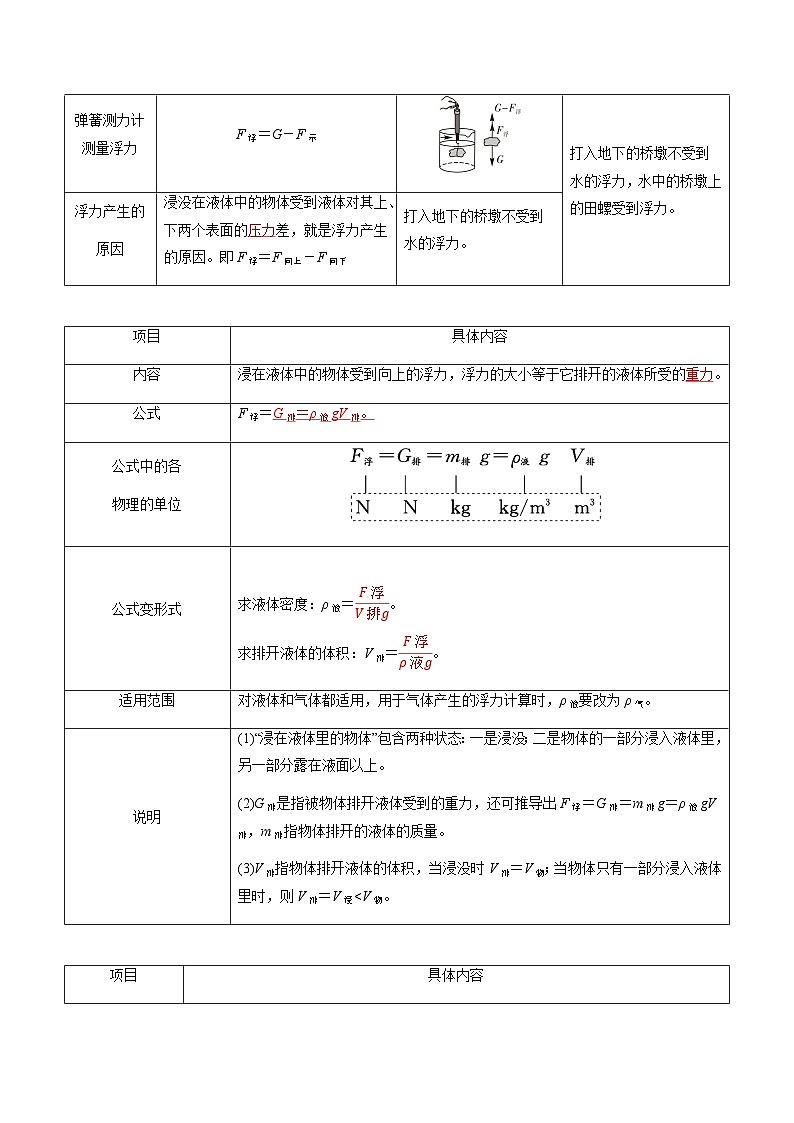 弹簧测力计
测量浮力
F浮＝G－F示
G－F浮
F浮
G
打入地下的桥墩不受到
水的浮力，水中的桥墩上
的田螺受到浮力。
浮力产生的
原因
浸没在液体中的物体受到液体对其上、
下两个表面的压力差，就是浮力产生
的原因。即F浮＝F向上－F向下
打入地下的桥墩不受到
水的浮力。
项目 具体内容
内容 浸在液体中的物体受到向上的浮力，浮力的大小等于它排开的液体所受的重力。
公式 F浮＝G排＝ρ液gV排。
公式中的各
物理的单位
F浮＝G排＝m排 g＝ρ液 g V排
N N kg kg/m³ m³
公式变形式
求液体密度：ρ液＝F浮/V排g。
求排开液体的体积：V排＝F浮/ρ液g。
适用范围 对液体和气体都适用，用于气体产生的浮力计算时，ρ液要改为ρ气。
说明
(1)“浸在液体里的物体”包含两种状态：一是浸没；二是物体的一部分浸入液体里，
另一部分露在液面以上。
(2)G排是指被物体排开液体受到的重力，还可推导出F浮＝G排＝m排g＝ρ液gV
排，m排指物体排开的液体的质量。
(3)V排指物体排开液体的体积，当浸没时V排＝V物；当物体只有一部分浸入液体
里时，则V排＝V浸<V物。
项目 具体内容